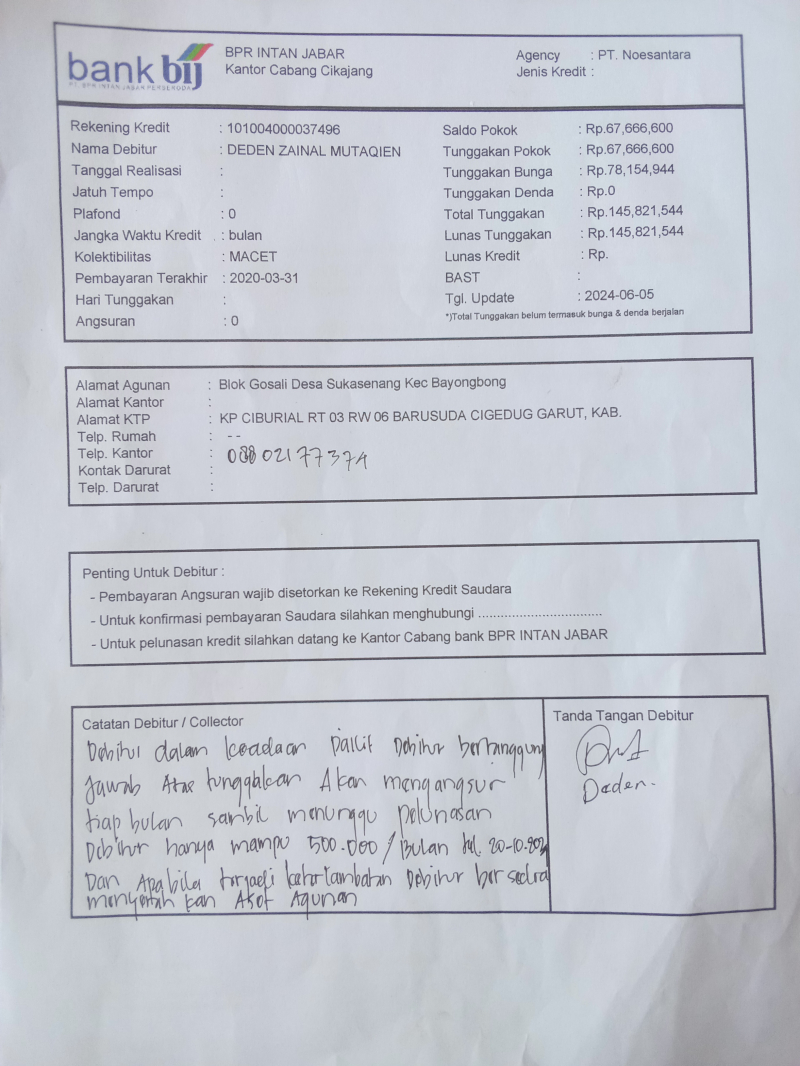 bank bij
PT. BPR INTAN JABAR PERSERODA
BPR INTAN JABAR
Kantor Cabang Cikajang
Agency : PT. Noesantara
Jenis Kredit :
Rekening Kredit : 101004000037496
Nama Debitur : DEDEN ZAINAL MUTAQIEN
Tanggal Realisasi :
Jatuh Tempo :
Plafond : 0
Jangka Waktu Kredit : bulan
Kolektibilitas : MACET
Pembayaran Terakhir : 2020-03-31
Hari Tunggakan :
Angsuran : 0
Saldo Pokok : Rp.67,666,600
Tunggakan Pokok : Rp.67,666,600
Tunggakan Bunga : Rp.78,154,944
Tunggakan Denda : Rp.0
Total Tunggakan : Rp.145,821,544
Lunas Tunggakan : Rp.145,821,544
Lunas Kredit : Rp.
BAST :
Tgl. Update : 2024-06-05
*)Total Tunggakan belum termasuk bunga & denda berjalan
Alamat Agunan : Blok Gosali Desa Sukasenang Kec Bayongbong
Alamat Kantor :
Alamat KTP : KP CIBURIAL RT 03 RW 06 BARUSUDA CIGEDUG GARUT, KAB.
Telp. Rumah : --
Telp. Kantor :
Kontak Darurat :
Telp. Darurat :
Penting Untuk Debitur :
- Pembayaran Angsuran wajib disetorkan ke Rekening Kredit Saudara
- Untuk konfirmasi pembayaran Saudara silahkan menghubungi ..................................
- Untuk pelunasan kredit silahkan datang ke Kantor Cabang bank BPR INTAN JABAR
Catatan Debitur / Collector
Debitur dalam keadaan Pailit Debitur bertanggung
jawab Atas tunggakan Akan mengangsur
tiap bulan sambil menunggu pelunasan
Debitur hanya mampu 500.000 / Bulan
Dan Apabila terjadi keterlambatan Debitur bersedia
menyerahkan Aset Agunan
Tanda Tangan Debitur
Deden.